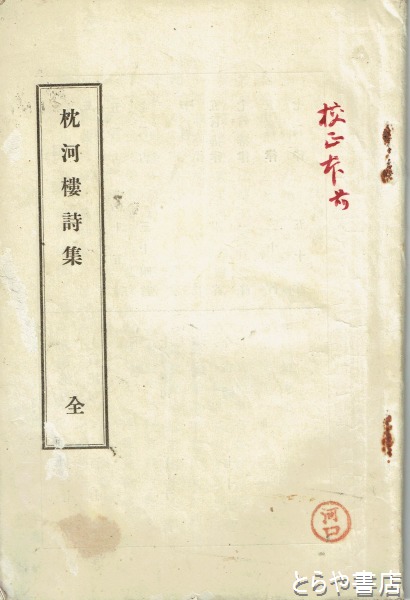 校正本
枕河樓詩集
全
河口
とらや書店